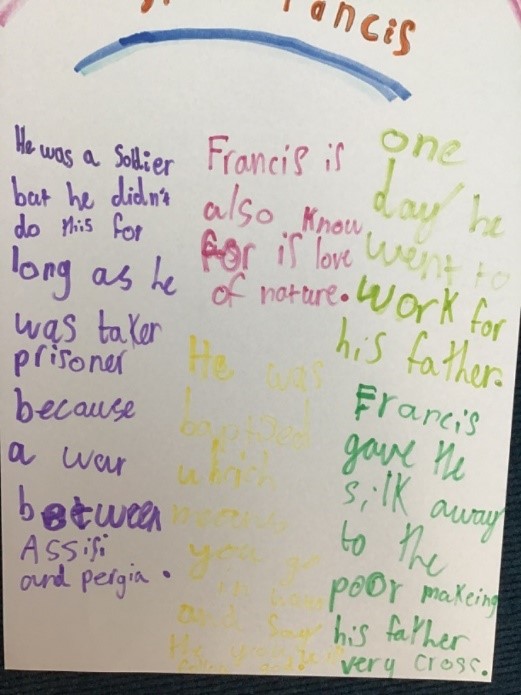 Francis
He was a Soldier
but he didn't
do this for
long as he
was taker
prisoner
because
a war
between
ASSisi
and pergia.
Francis is
also know
For is love
of nature.
He was
baptised
which
means
you go
in
and say
He
one
day he
went to
work for
his father.
Francis
gave the
silk away
to the
poor makeing
his father
very cross.